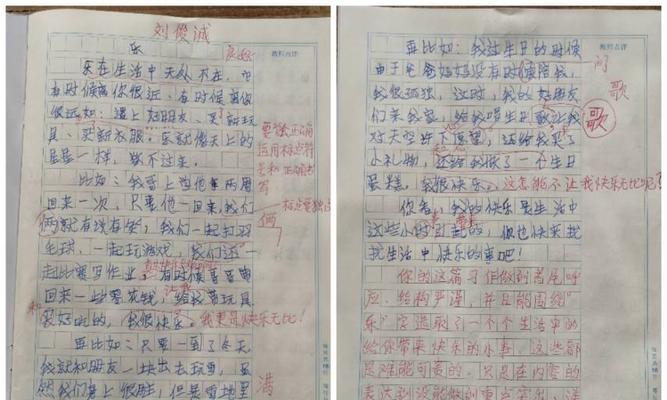 刘俊诚
乐
良好
乐在生活中无处不在，它
有时候离你很近，有时候离你
很远如：遇上好朋友、买新玩
具、买新衣服。乐就像天上的
星星一样，数不过来。
要能正确
运用标点符
号和正确书
写
比如：我哥上学他 两周
回来一次，只要他一回来，我们
俩就有说有笑，我们一起打羽
俩
毛球，一起玩游戏，我们还一
起比赛写作业，有时候哥哥
回来一些零花钱，给我买玩具
和
买好吃的，我很快乐。我更是快乐无比！
再比如：只要一到了冬天
我就和朋友一块出去玩雪，虽
然我们身上很脏，但是雪地里
满
教师点评
再比如：我过生日的时候
由于爸爸妈妈没有时候陪我，
我很孤独，这时，我的好朋友
们来我家，给我唱生日歌让我
对天空许下愿望，还给我买了
小礼物，还给我做了一个生日
蛋糕，我很快乐。这怎能不让我快乐无比呢？
间
歌
歌
你看，我的快乐是生活中
这些小事引起的，你也快来找
找生活中快乐的事吧！
你的这篇习作做到首尾呼
应、结构严谨，并且能围绕“
乐”字选取了一个个生活中的
给你带来快乐的小事。这些都
是难能可贵的。只是在内容的
表达到没能做到重点突出，详